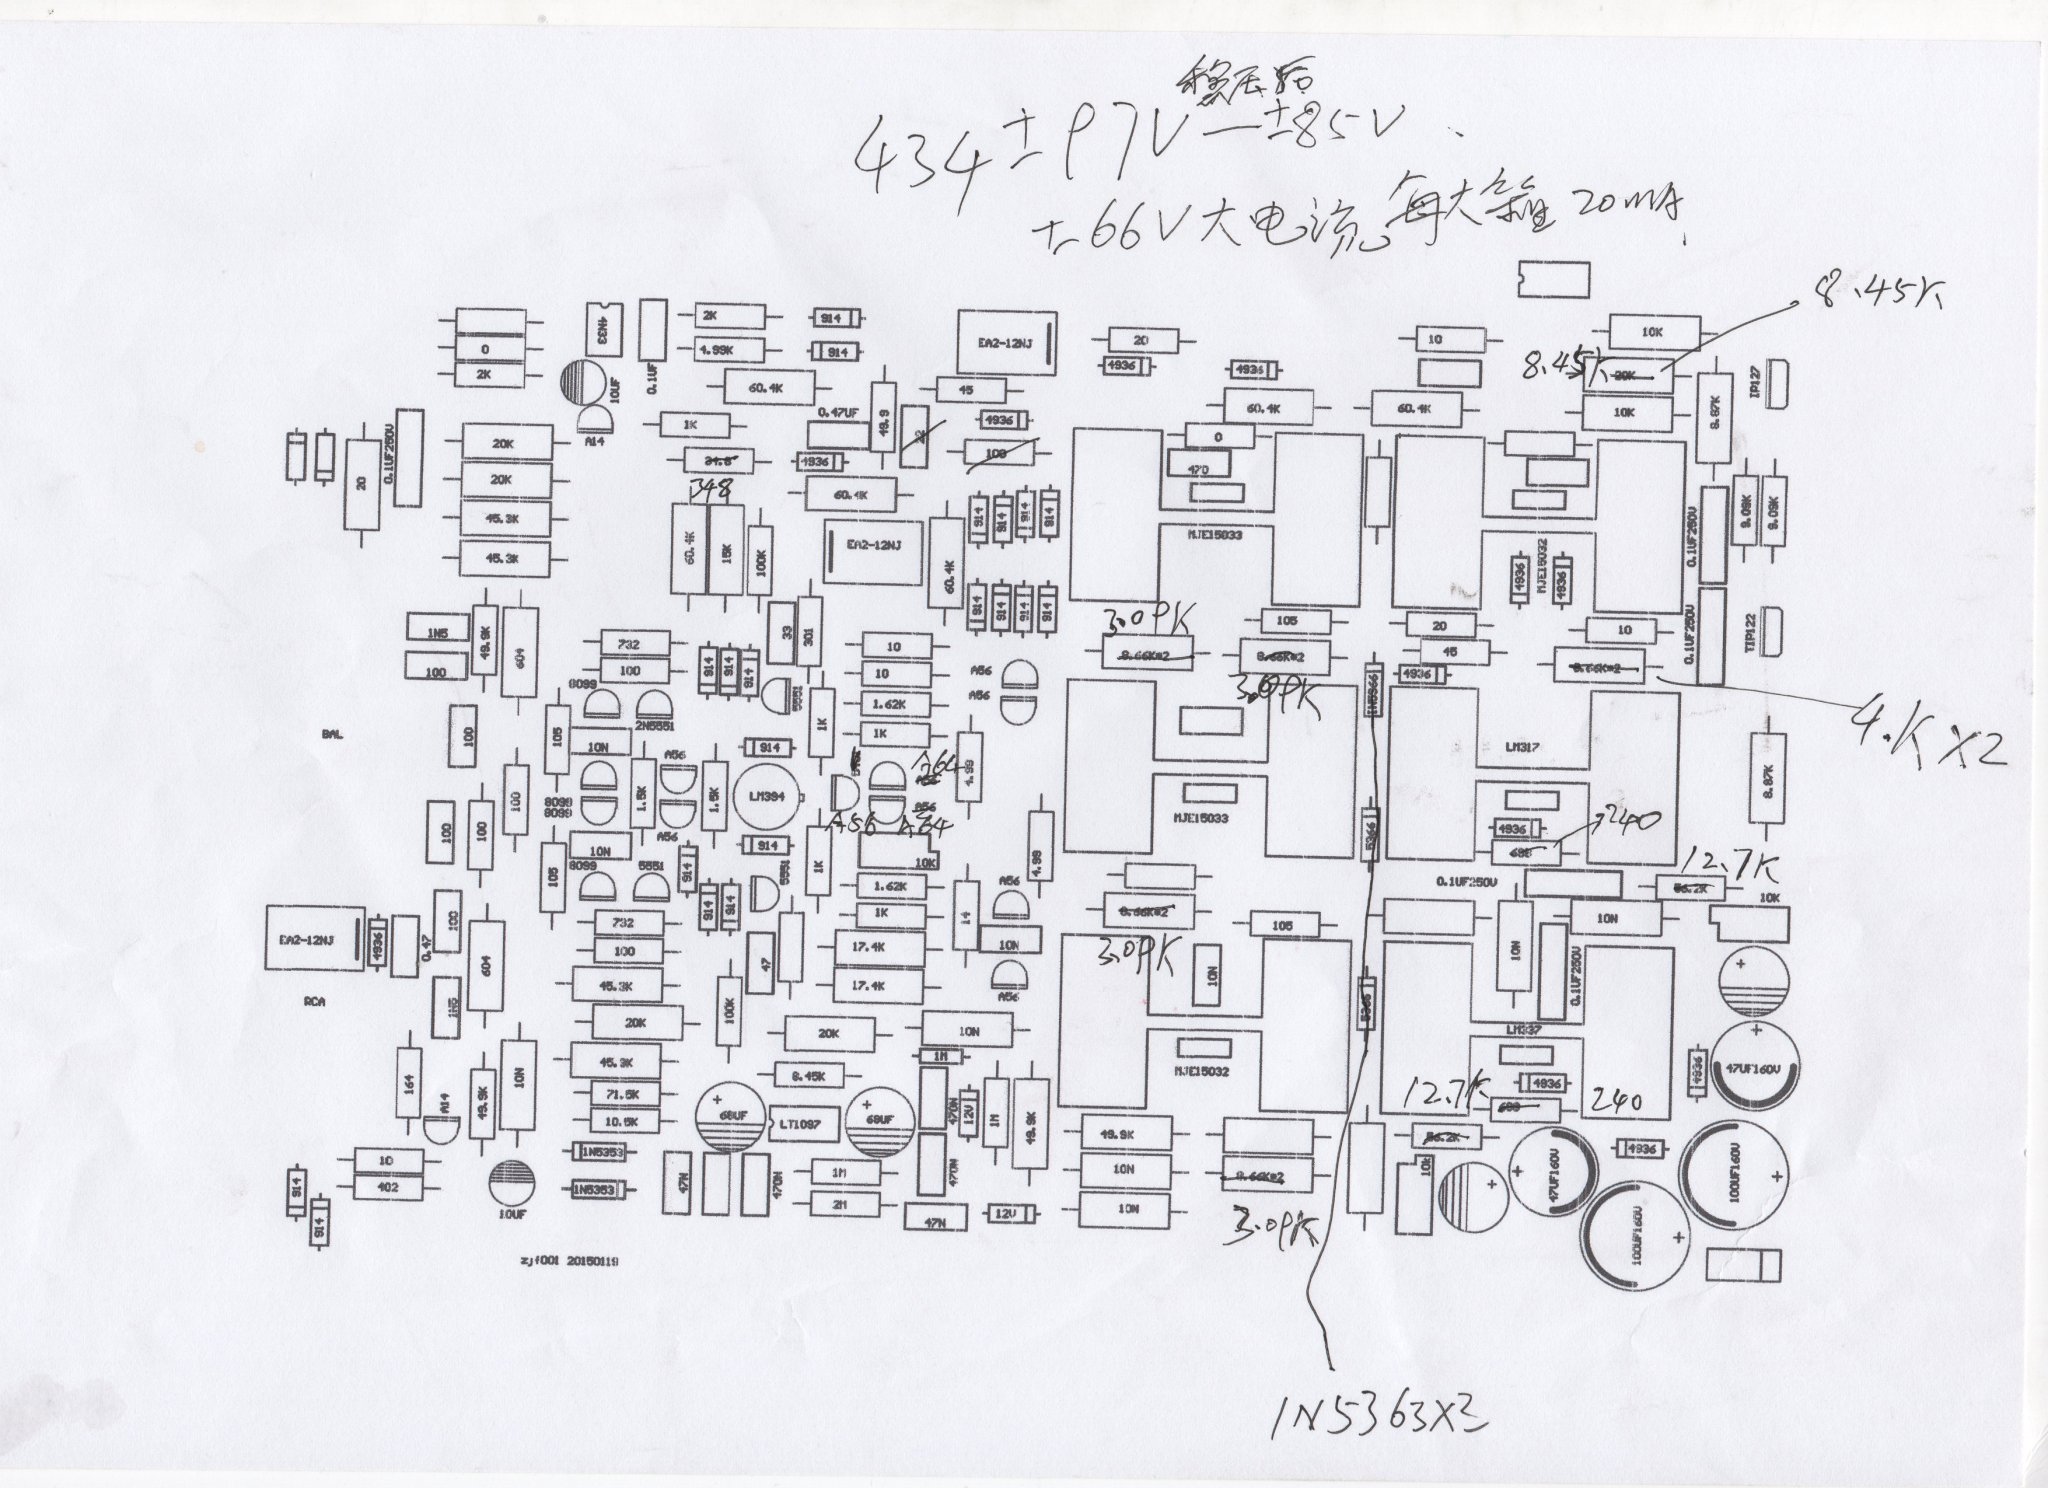 稳压后
434 ±97V — ±85V
±66V 大电流 每大管 20mA
8.45K
2K
914
EA2-12NJ
20
10
10K
4N33
0
4.99K
914
4936
4936
8.45K
20K
TIP127
2K
10UF
0.1UF
60.4K
45
60.4K
60.4K
10K
8.87K
A14
1K
0.47UF
49.9
4936
100
0
20K
0.1UF250V
20
34.8
4936
470
20K
348
60.4K
914
914
914
914
9.09K
9.09K
45.3K
60.4K
15K
100K
EA2-12NJ
60.4K
MJE15033
MJE15032
0.1UF250V
45.3K
4936
4936
914
914
914
914
3.09K
1N5
49.9K
604
732
33
301
10
105
20
10
0.1UF250V
TIP122
100
100
914
914
914
10
A56
8.66K*2
8.66K*2
45
8.66K*2
8099
2N5551
5551
1.62K
A56
3.09K
1N5366
4936
4.KX2
BAL
100
105
10N
1K
1K
914
4.99
LM317
8.87K
100
1.5K
A56
1.5K
LM394
A64
A56
8099
8099
A56
A56
A56
A64
MJE15033
5366
4936
240
100
100
10N
914
10K
4.99
12.7K
105
8099
5551
914
5551
1K
1.62K
0.1UF250V
86.2K
10K
914
914
1K
14
A56
8.66K*2
105
10N
EA2-12NJ
4936
0.47
100
604
732
100
47
17.4K
10N
3.09K
10N
10N
0.1UF250V
RCA
1N5
45.3K
100K
17.4K
A56
5366
20K
20K
10N
LM337
164
A14
49.9K
10N
45.3K
8.45K
1M
MJE15032
12.7K
4936
4936
47UF160V
71.5K
68UF
LT1097
68UF
470N
12V
1M
49.9K
240
10.5K
49.9K
86.2K
10
402
10UF
1N5353
1N5353
47N
470N
1M
2M
470N
47N
12V
10N
10N
8.66K*2
3.09K
10k
47UF160V
4936
100UF160V
100UF160V
914
914
zjf001 20150119
1N5363X3